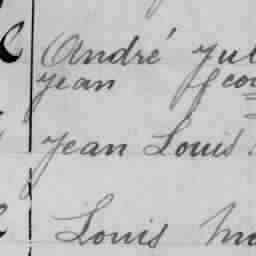 André Jul
Jean Geor
Jean Louis
Louis Ma